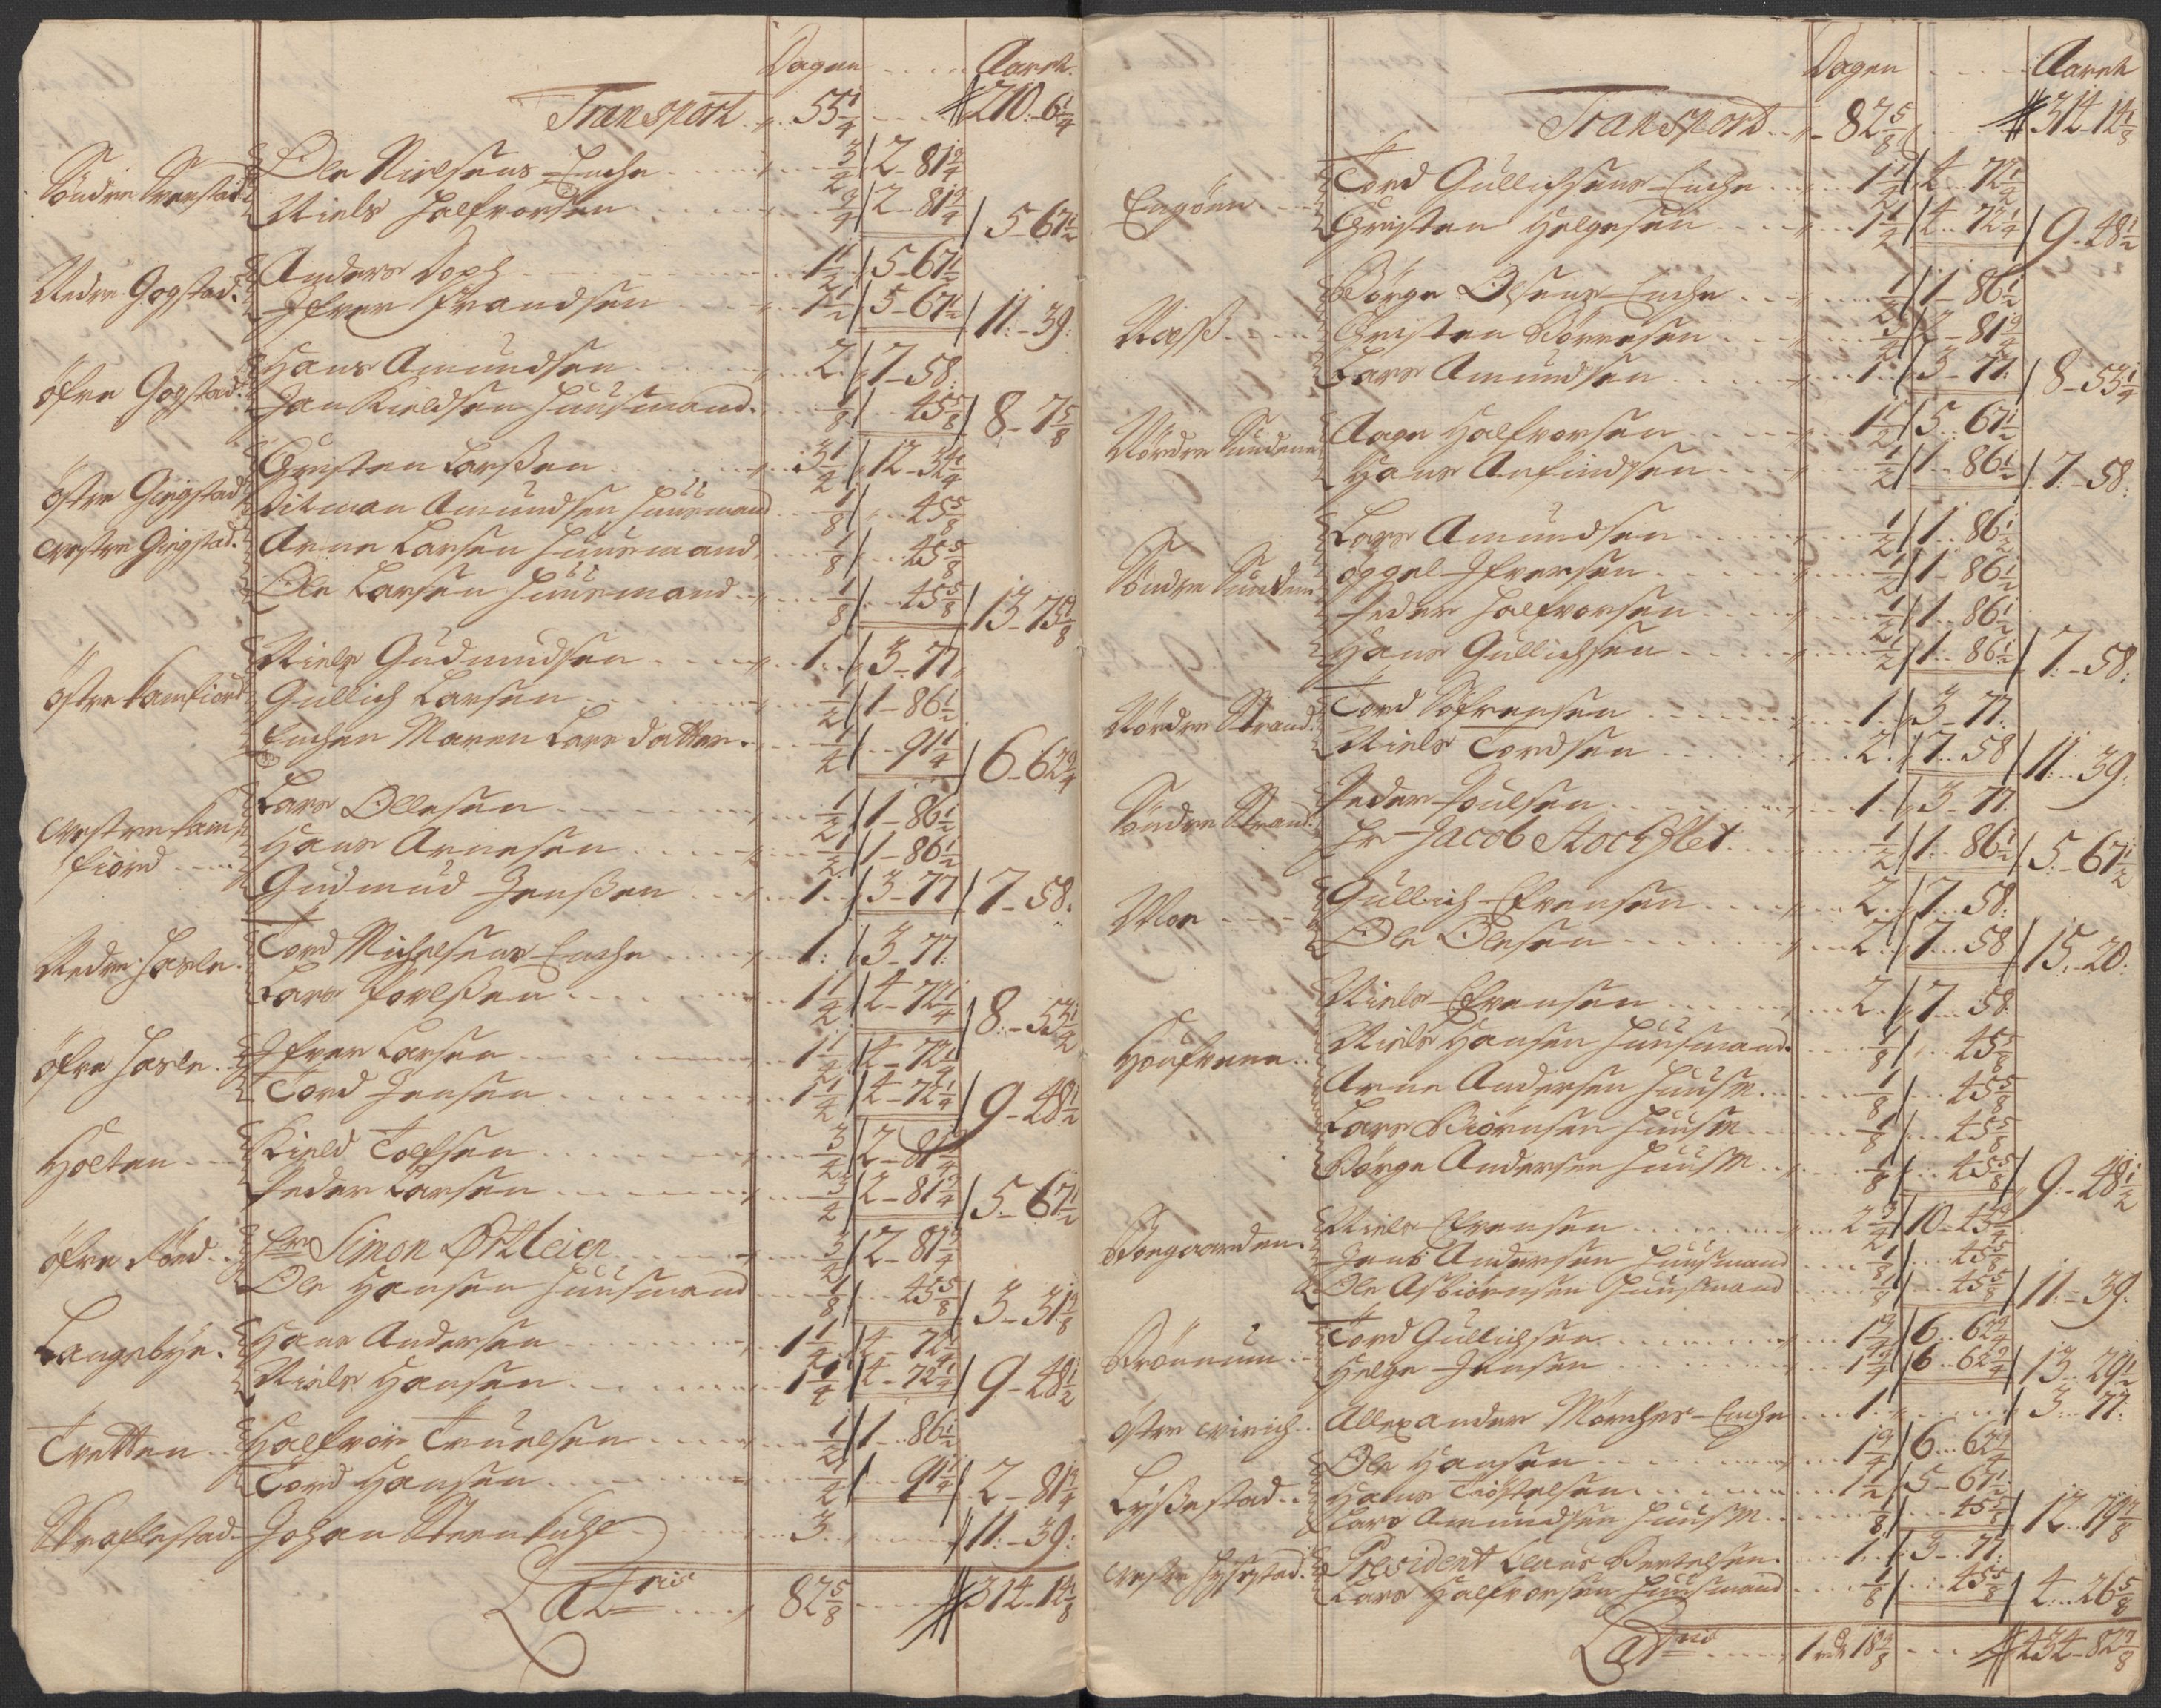 Dagen .... Aaret.
Transport .. 55 1/4 .... 210-6 1/4
Söndre Srenstad Ole Nielsens Encke .... 3/4 / 2-81 3/4
Niels Halfvorsen .... 3/4 / 2-81 3/4 / 5-67 1/2
Nedre Gogstad. Anders Doph .... 1 1/2 / 5-67 1/2
Ifver Frandsen .... 1 1/2 / 5-67 1/2 / 11-39:
öfre Gogstad. Hans Amundsen .... 2. / 7-58.
Jan Kieldsen Huusmand. 1/8 / 45 5/8 / 8-7 5/8
östre Giegstad Christen Larsen .... 3 1/4 / 12-34 1/4
Ditman Amundsen Huusmand 1/8 / 45 5/8
westre Giegstad. Arne Larsen Huusmand 1/8 / 45 5/8
Ole Larsen Huusmand .. 1/8 / 45 5/8 / 13-75 1/8
Niels Gudmudsen .... 1. / 3-77
östre Camfiord Gullich Larsen .... 1/2 / 1-86 1/2
Enchen Maren Lars datter. 1/4 / 91 1/4 / 6-62 3/4
Lars Ollesen .... 1/2 / 1-86 1/2
westre Cam Hans Arnesen .... 1/2 / 1-86 1/2
fiord .... Gudmud Jensen .. 1. / 3-77 / 7-58.
Nedre Hasle. Tord Michelsens Encke .. 1. / 3-77.
Lars Povelsen .... 1 1/4 / 4-72 1/4 / 8-53 1/2
öfre Hasle. Ifver Larsen .... 1 1/4 / 4-72 1/4
Tord Jensen .... 1 1/4 / 4-72 1/4 / 9-48 1/2
Holten .. Kield Tolfsen .... 3/4 / 2-81 3/4
Peder Larsen .... 3/4 / 2-81 3/4 / 5-67 1/2
öfre Röd .. Hr Simon .... 3/4 / 2-81 3/4
Ole Hansen Huusmand 1/8 / 45 5/8 / 3-31 3/8
Langebye. Hans Andersen .... 1 1/4 / 4-72 1/4
Niels Hansen .... 1 1/4 / 4-72 1/4 / 9-48 1/2
Tretten .. Halfvor Truelsen .... 1/2 / 1-86 1/2
Tord Hansen .... 1/4 / 91 1/4 / 2-81 3/4
Skraflestad Johan Steenkuhl .... 3 .... / 11-39:
Lateris .... 82 5/8 .... 314-14 1/8
Dagen .... Aaret
Transport .. 82 5/8 .... 314-14 1/8
Engöen .. Tord Gullichsens Encke .. 1 1/4 / 4-72 1/4
Christen Helgesen .... 1 1/4 / 4-72 1/4 / 9-48 1/2
Börge Olsens Encke .. 1/2 / 1-86 1/2
Næss .... Christen Börresen .. 3/4 / 2-81 3/4
Lars Amundsen .... 1. / 3-77. / 8-53 1/4
Nördre Sundene Aage Halfvorsen .. 1 1/2 / 5-67 1/2
Hans Anfindsen .. 1/2 / 1-86 1/2 / 7-58:
Lars Amundsen .... 1/2 / 1-86 1/2
Söndre Sundene Ifversen .. 1/2 / 1-86 1/2
Peder Halfvorsen .. 1/2 / 1-86 1/2
Hans Gullichsen .... 1/2 / 1-86 1/2 / 7-58:
Nördre Strand. Tord Söfrensen .... 1. / 3-77.
Niels Tordsen .... 2. / 7-58 / 11-39.
Söndre Strand. Peder Poulsen .... 1. / 3-77.
Hr Jacob Stockflet .. 1/2 / 1-86 1/2 / 5-67 1/2
Moe .... Gullich Efvensen .... 2. / 7-58:
Ole Olesen .... 2. / 7-58 / 15-20:
Niels Efvensen .... 2. / 7-58.
Houfvene .. Niels Hansen Huusmand. 1/8 / 45 5/8
Arne Andersen Huusm. 1/8 / 45 5/8
Lars Biörnsen Huusm .. 1/8 / 45 5/8
Börge Andersen Huusm .. 1/8 / 45 5/8 / 9-48 1/2
Boegaarden. Niels Efvensen .... 2 3/4 / 10-43 3/4
Jens Andersen Huusmand 1/8 / 45 5/8
Ole Asbiörnsen Huusmand 1/8 / 45 5/8 / 11-39.
Brönnum .. Tord Gullichsen .... 1 3/4 / 6-62 3/4
Helge Jensen .... 1 3/4 / 6-62 3/4 / 13-29 1/2
östre wirich .. Allexander Mörches Encke .. 1. .... / 3-77:
Ole Hansen .... 1 3/4 / 6-62 3/4
Lysestad .. Hans Tröstelsen .... 1 1/2 / 5-67 1/2
Lars Amundsen Huusm .. 1/8 / 45 5/8 / 12-79 7/8
westre Lysestad. President Claus Bertelsen. 1. / 3-77.
Lars Halfvorsen Huusmand 1/8 / 45 5/8 / 4-26 5/8
Lateris .... 1 mdr 18 3/8 .... 434-82 7/8